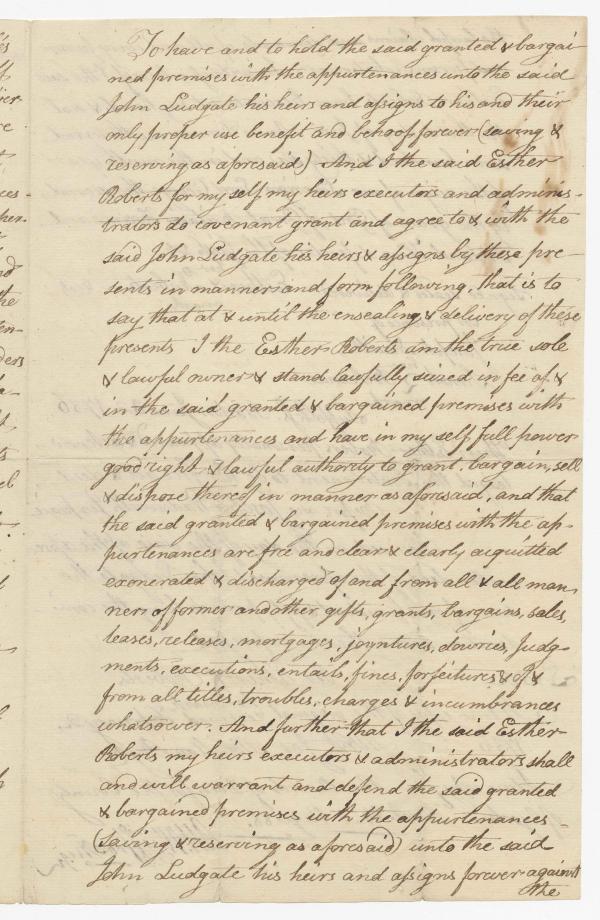 To have and to hold the said granted & bargai
ned premises with the appurtenances unto the said
John Ludgate his heirs and assigns to his and their
only proper use benefit and behoof forever (saving &
reserving as aforesaid) And I the said Esther
Roberts for my self my heirs executors and adminis-
trators do covenant grant and agree to & with the
said John Ludgate his heirs & assigns by these pre-
sents in manner and form following, that is to
say that at & until the ensealing & delivery of these
presents I the Esther Roberts am the true sole
& lawful owner & stand lawfully seized in fee of &
in the said granted & bargained premises with
the appurtenances and have in my self full power
good right & lawful authority to grant, bargain, sell
& dispose thereof in manner as aforesaid, and that
the said granted & bargained premises with the ap-
purtenances are free and clear & clearly acquitted
exonerated & discharged of and from all & all man
ner of former and other gifts, grants, bargains, sales,
leases, releases, mortgages, joyntures, dowries, Judg-
ments, executions, entails, fines, forfeitures & of &
from all titles, troubles, charges & incumbrances
whatsoever. And further that I the said Esther
Roberts my heirs executors & administrators shall
and will warrant and defend the said granted
& bargained premises with the appurtenances
(saving & reserving as aforesaid) unto the said
John Ludgate his heirs and assigns forever against
the